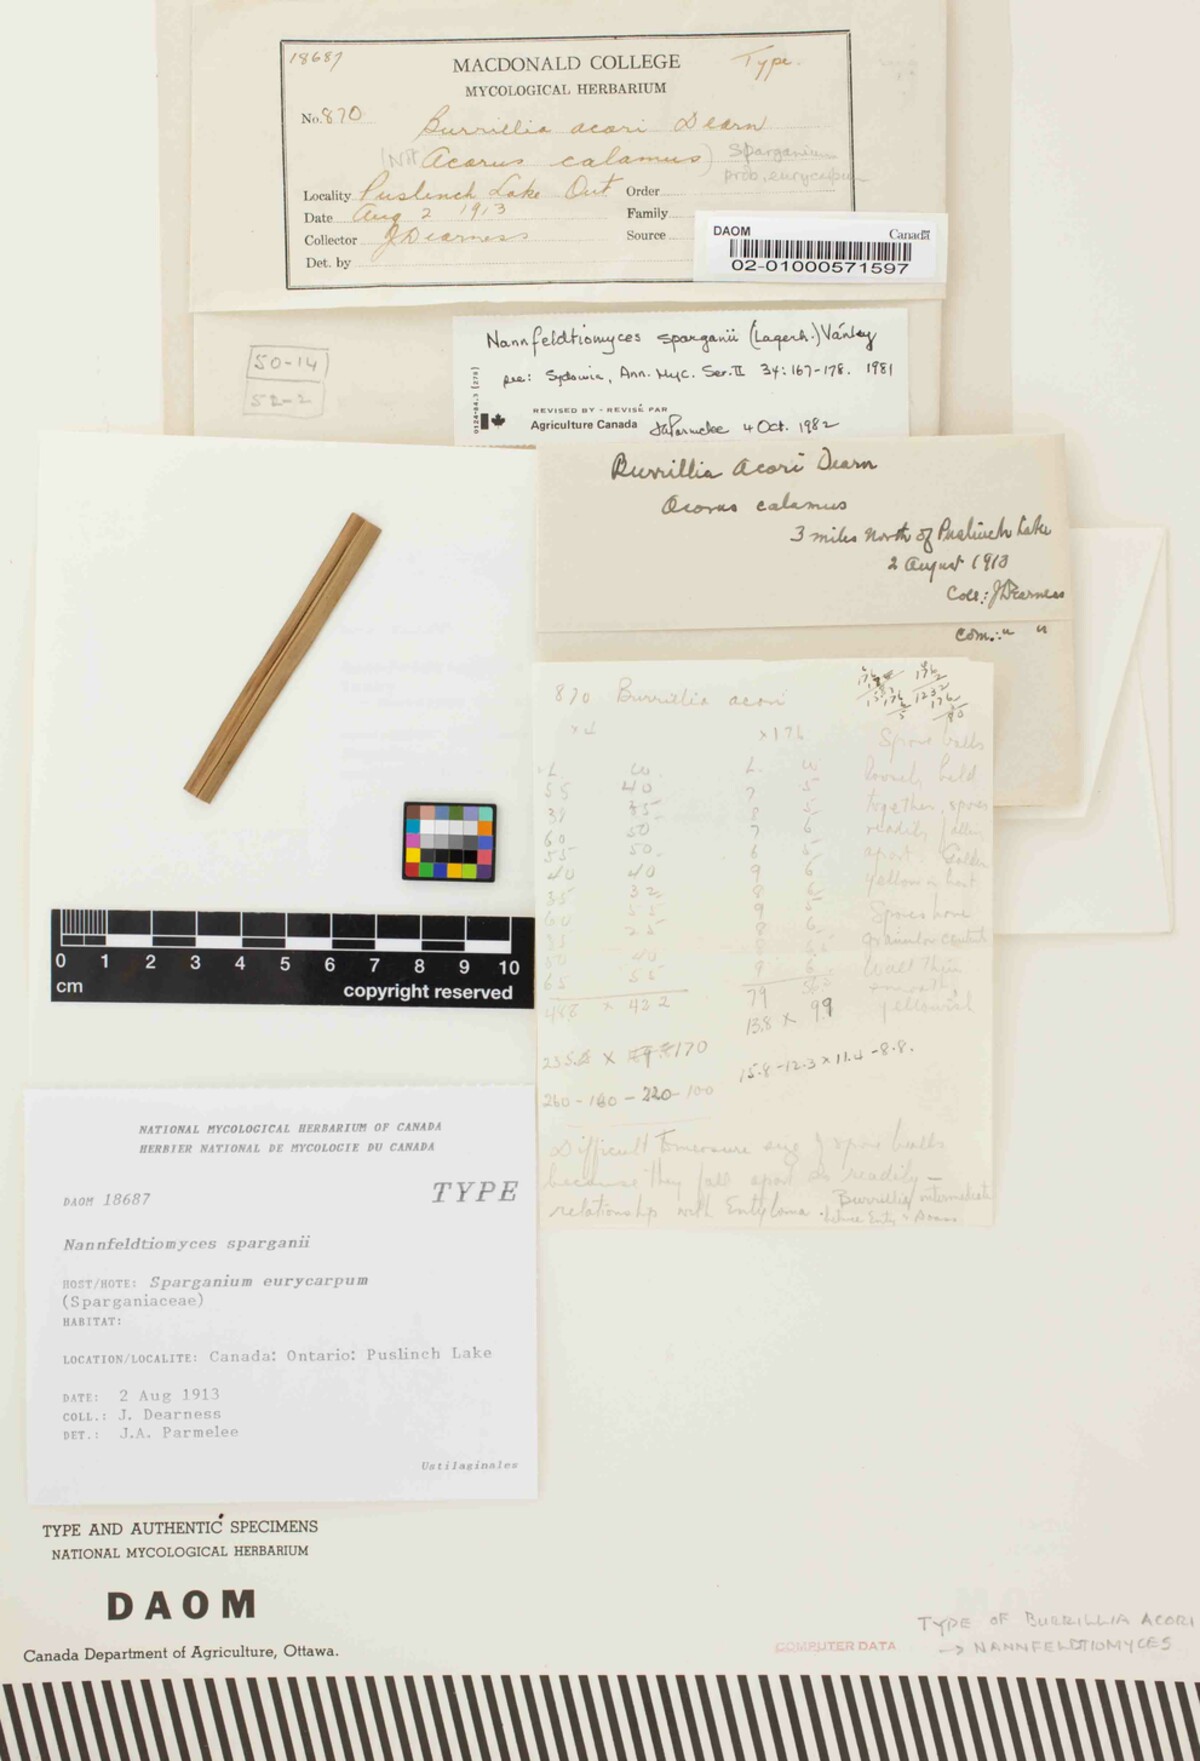 18687
MACDONALD COLLEGE
Type.
MYCOLOGICAL HERBARIUM
No. 870
Burrillia acori Dearn
(Not Acorus calamus) Sparganium
prob. eurycarpum
Locality Puslinch Lake Ont Order
Date Aug 2 1913 Family
Collector J Dearness Source
Det. by
DAOM Canada
02-01000571597
50-14
52-2
Nannfeldtiomyces sparganii (Lagerh.) Vánky
see: Sydowia, Ann. Myc. Ser. II 34: 167-178. 1981
REVISED BY - REVISÉ PAR
Agriculture Canada JAParmelee 4 Oct. 1982
Burrillia Acori Dearn
Acorus calamus
3 miles North of Puslinch Lake
2 August 1913
Coll: J Dearness
Com.: " "
870 Burrillia acori
×176 Spore balls
L. W. L. W loosely held
55 40 7 5 together, spores
60 50 7 6 readily falling
55 50 6 5 apart. Golden
40 40 9 6 yellow in host
35 32 8
60 55 9 5 Spores have
25 8 6 granular contents
50 40
65 55 9 6 Wall thin
smooth,
× 432 79 yellowish
13.8 × 9.9
170
15.8-12.3 × 11.4 -8.8.
260 - 180 - 220 - 100
Difficult to measure size of spore balls
because they fall apart so readily —
relationship with Entyloma. Burrillia intermediate
0 1 2 3 4 5 6 7 8 9 10
cm
copyright reserved
NATIONAL MYCOLOGICAL HERBARIUM OF CANADA
HERBIER NATIONAL DE MYCOLOGIE DU CANADA
DAOM 18687 TYPE
Nannfeldtiomyces sparganii
HOST/HOTE: Sparganium eurycarpum
(Sparganiaceae)
HABITAT:
LOCATION/LOCALITE: Canada: Ontario: Puslinch Lake
DATE: 2 Aug 1913
COLL.: J. Dearness
DET.: J.A. Parmelee
Ustilaginales
TYPE AND AUTHENTIC SPECIMENS
NATIONAL MYCOLOGICAL HERBARIUM
DAOM
Canada Department of Agriculture, Ottawa.
COMPUTER DATA
TYPE OF BURRILLIA ACORI
→ NANNFELDTIOMYCES